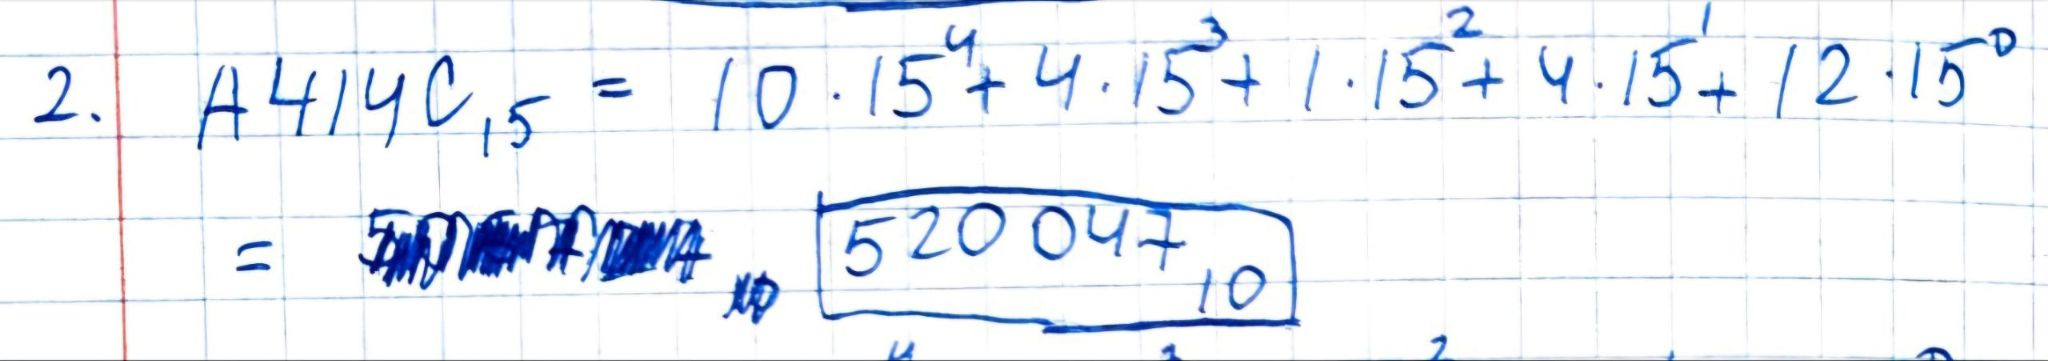 2. A414C₁₅ = 10 · 15⁴ + 4 · 15³ + 1 · 15² + 4 · 15¹ + 12 · 15⁰
= 520047₁₀